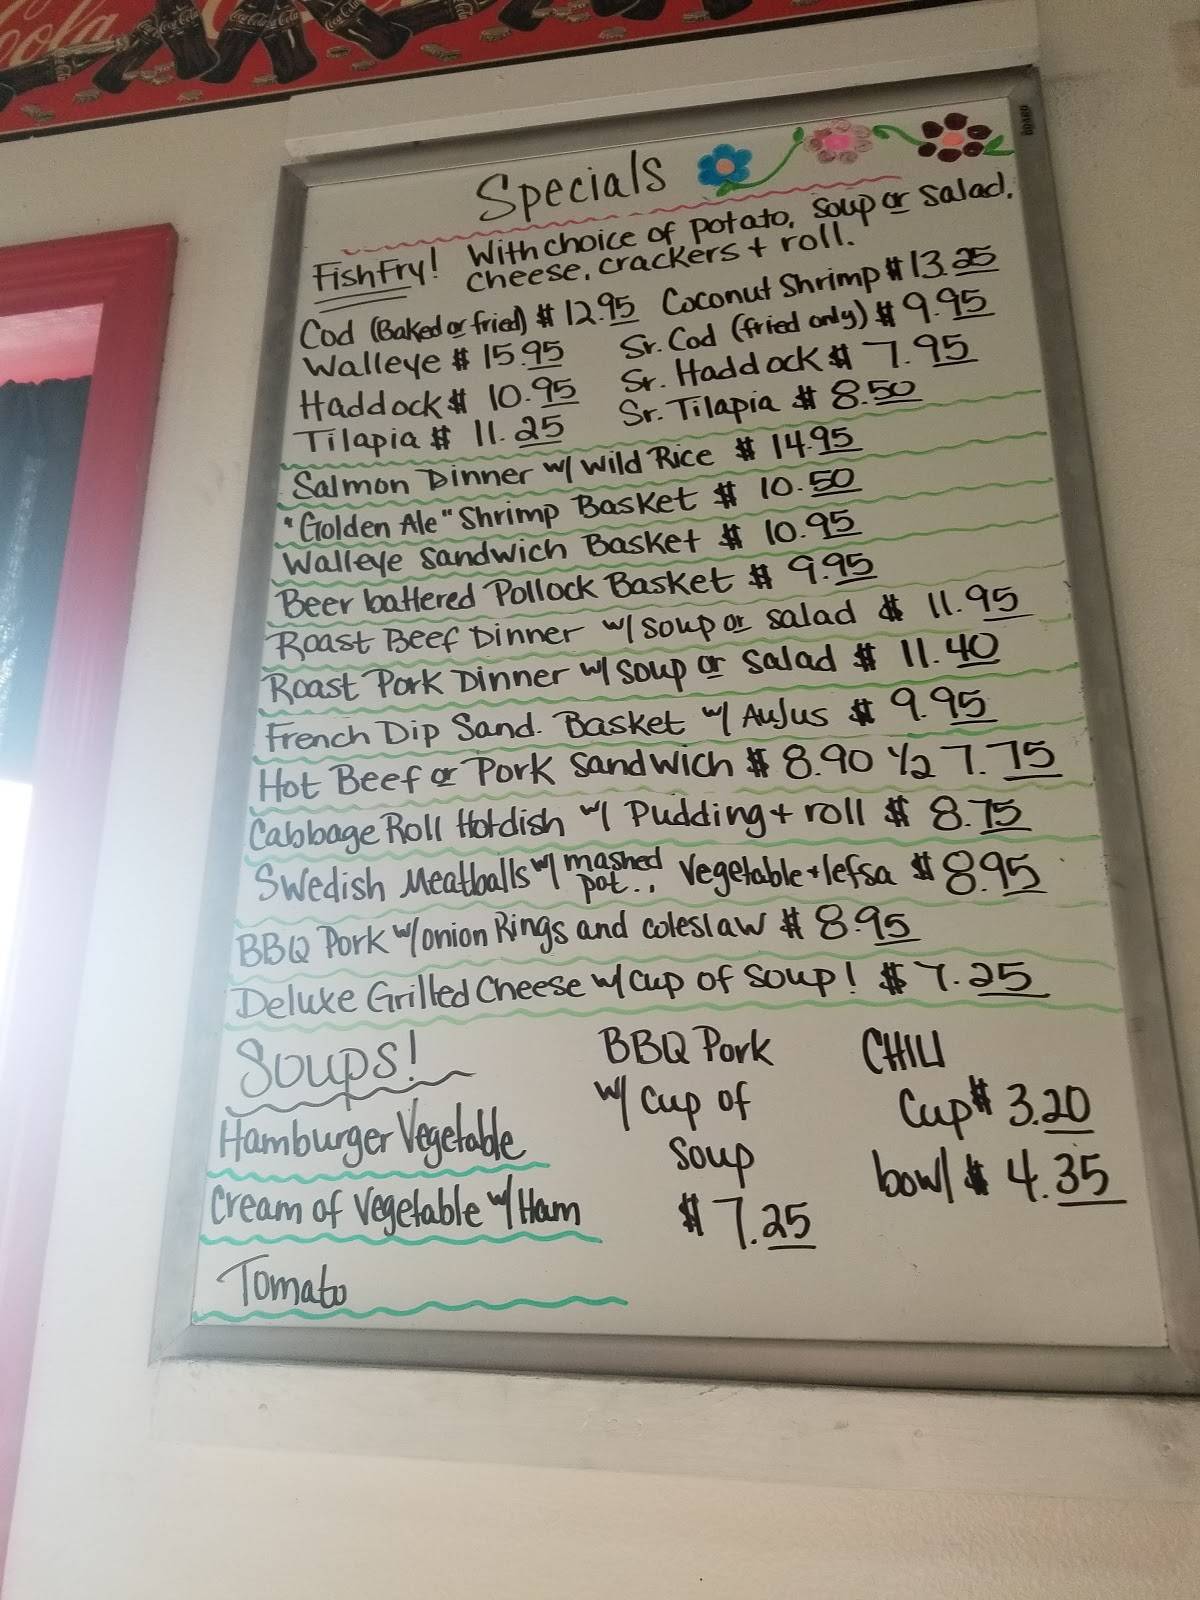 Cola
Coca-Cola
Specials
Fish Fry! With choice of potato, soup or salad,
cheese, crackers + roll.
Cod (Baked or fried) $ 12.95 Coconut Shrimp $ 13.25
Walleye $ 15.95 Sr. Cod (fried only) $ 9.95
Haddock $ 10.95 Sr. Haddock $ 7.95
Tilapia $ 11.25 Sr. Tilapia $ 8.50
Salmon Dinner w/ Wild Rice $ 14.95
"Golden Ale" Shrimp Basket $ 10.50
Walleye Sandwich Basket $ 10.95
Beer battered Pollock Basket $ 9.95
Roast Beef Dinner w/ soup or salad $ 11.95
Roast Pork Dinner w/ soup or salad $ 11.40
French Dip Sand. Basket w/ AuJus $ 9.95
Hot Beef or Pork Sandwich $ 8.90 1/2 7.75
Cabbage Roll Hotdish w/ Pudding + roll $ 8.75
Swedish Meatballs w/ mashed pot.., Vegetable + lefsa $ 8.95
BBQ Pork w/ onion Rings and coleslaw $ 8.95
Deluxe Grilled Cheese w/ cup of soup! $ 7.25
Soups!
Hamburger Vegetable
Cream of Vegetable w/ Ham
Tomato
BBQ Pork
w/ cup of
soup
$ 7.25
CHILI
Cup $ 3.20
bowl $ 4.35